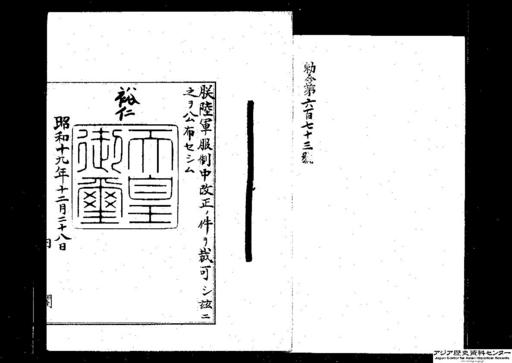 勅令第六百七十三號
朕陸軍服制中改正ノ件ヲ裁可シ茲ニ
之ヲ公布セシム
裕仁
天皇御璽
昭和十九年十二月二十八日
内閣
アジア歴史資料センター
Japan Center for Asian Historical Records